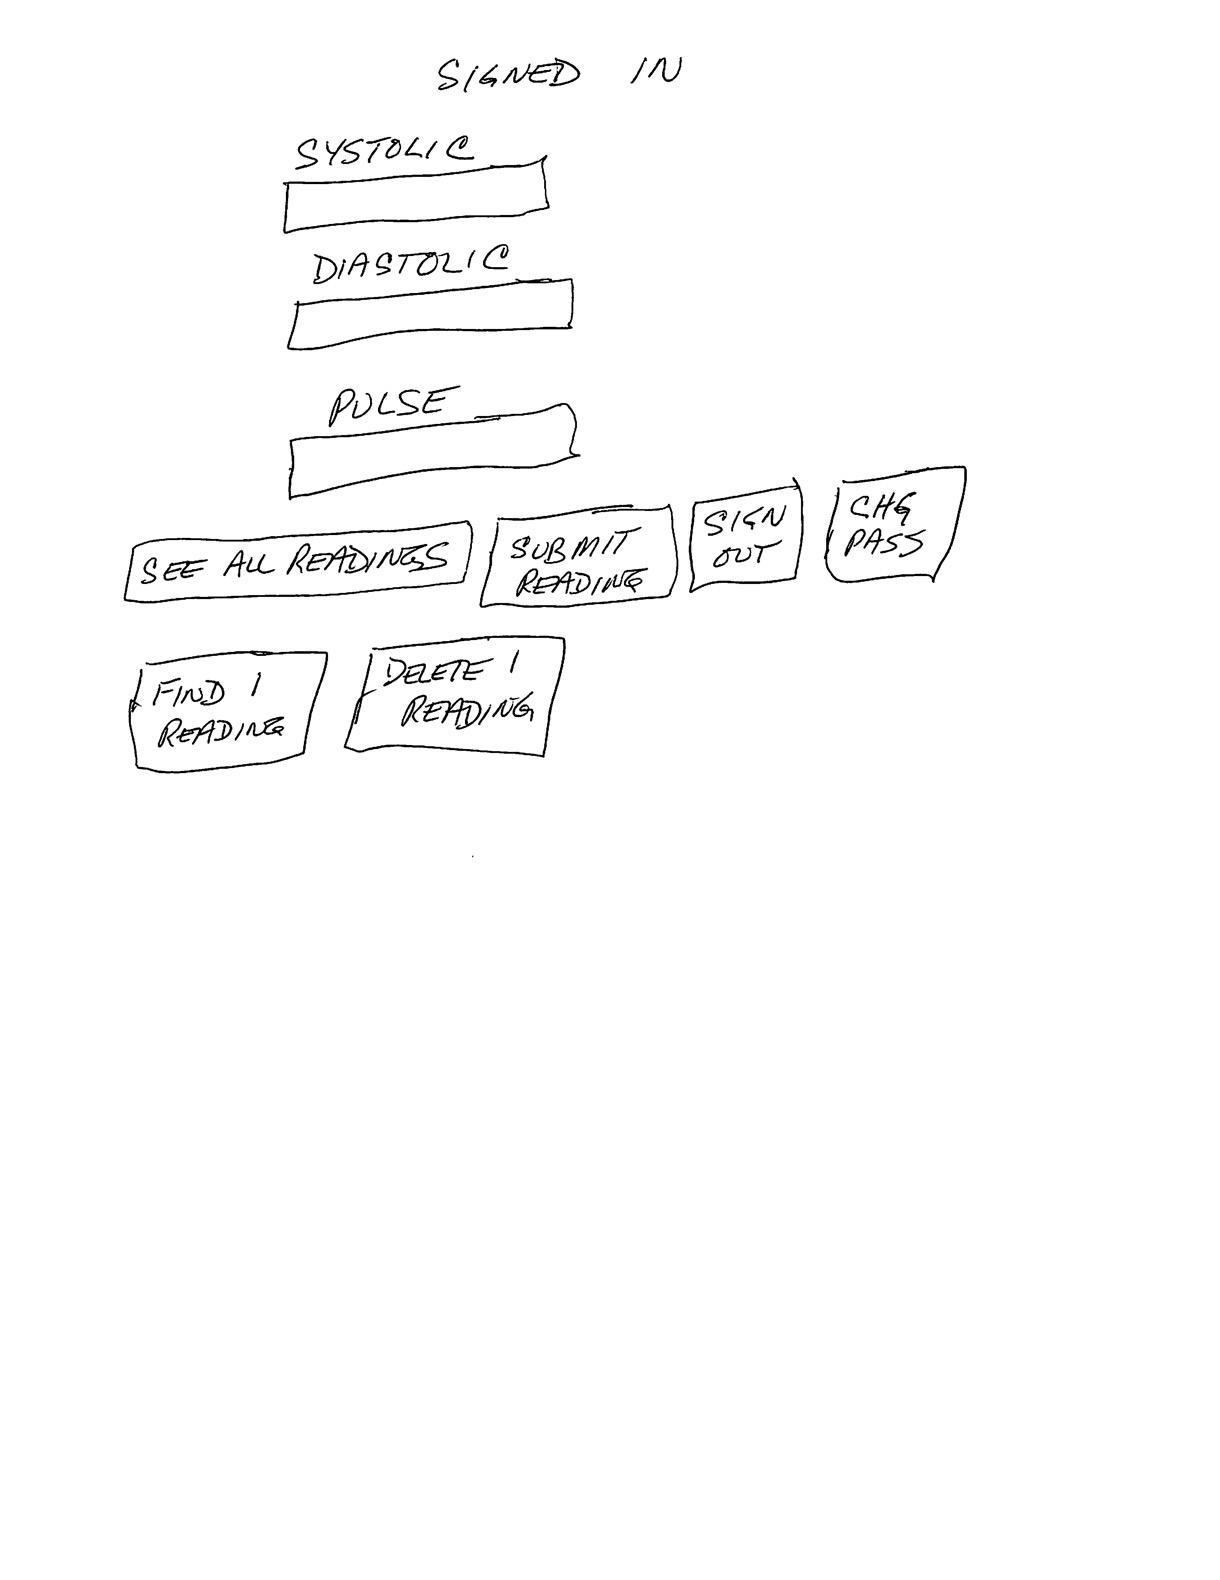 SIGNED IN
SYSTOLIC
DIASTOLIC
PULSE
SEE ALL READINGS
SUBMIT
READING
SIGN
OUT
CHG
PASS
FIND 1
READING
DELETE 1
READING